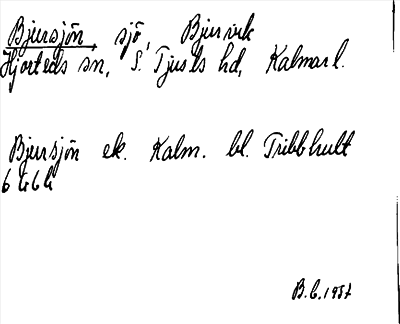 Bjursjön, sjö, Bjurvik
Hjorteds sn, S. Tjusts hd, Kalmar l.
Bjursjön ek. Kalm. bl. Tribbhult
6 G 6 h
B.C. 1957